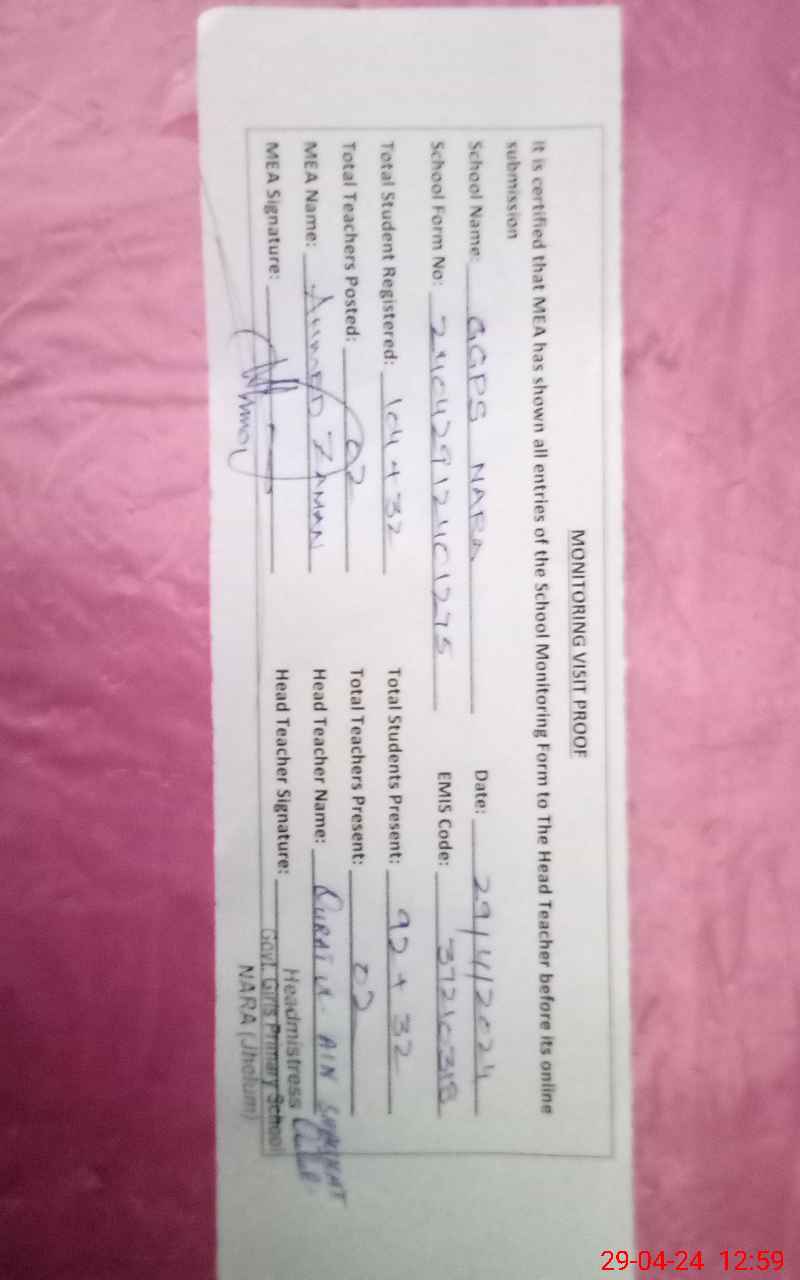 MONITORING VISIT PROOF
It is certified that MEA has shown all entries of the School Monitoring Form to The Head Teacher before its online
submission
School Name: GGPS NARA Date: 29/4/2024
School Form No: EMIS Code: 37210318
Total Student Registered: 104 + 32 Total Students Present: 92 + 32
Total Teachers Posted: 02 Total Teachers Present: 02
MEA Name: AHMED ZAMAN Head Teacher Name: QURAT UL-AIN
MEA Signature: Head Teacher Signature:
Headmistress
Govt. Girls Primary School
NARA (Jhelum)
29-04-24 12:59